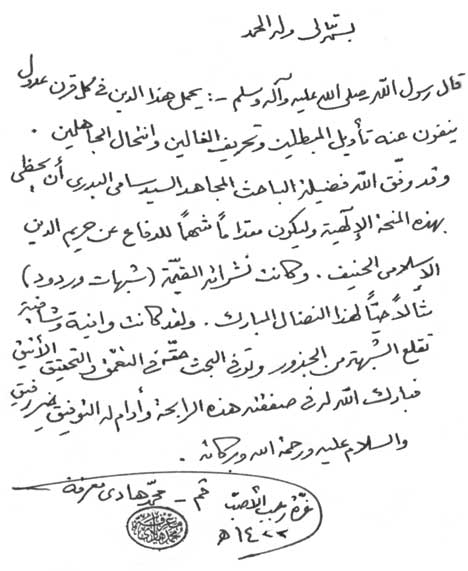 بسمه تعالى وله الحمد
قال رسول الله صلى الله عليه وآله وسلم -: يحمل هذا الدين في كل قرن عدول
ينفون عنه تأويل المبطلين وتحريف الغالين وانتحال الجاهلين .
وقد وفّق الله فضيلة الباحث المجاهد السيد سامي البدري أن يحظى
بهذه المنحة الإلٓهية وليكون مقداماً شهماً للدفاع عن حريم الدين
الاسلامي الحنيف . وكانت نشراته القيّمة (شبهات وردود)
مثالاً حيّاً لهذا النضال المبارك . ولقد كانت وافية وشافية
تقلع الشبهة من الجذور وتوفي البحث حقّه في التعمّق والتحقيق الأنيق
فبارك الله له في صفقته هذه الرابحة وأدام له التوفيق
والسلام عليه ورحمة الله وبركاته .
قم - محمد هادي معرفة
غرّة رجب الأصبّ
١٤٢٢ هـ